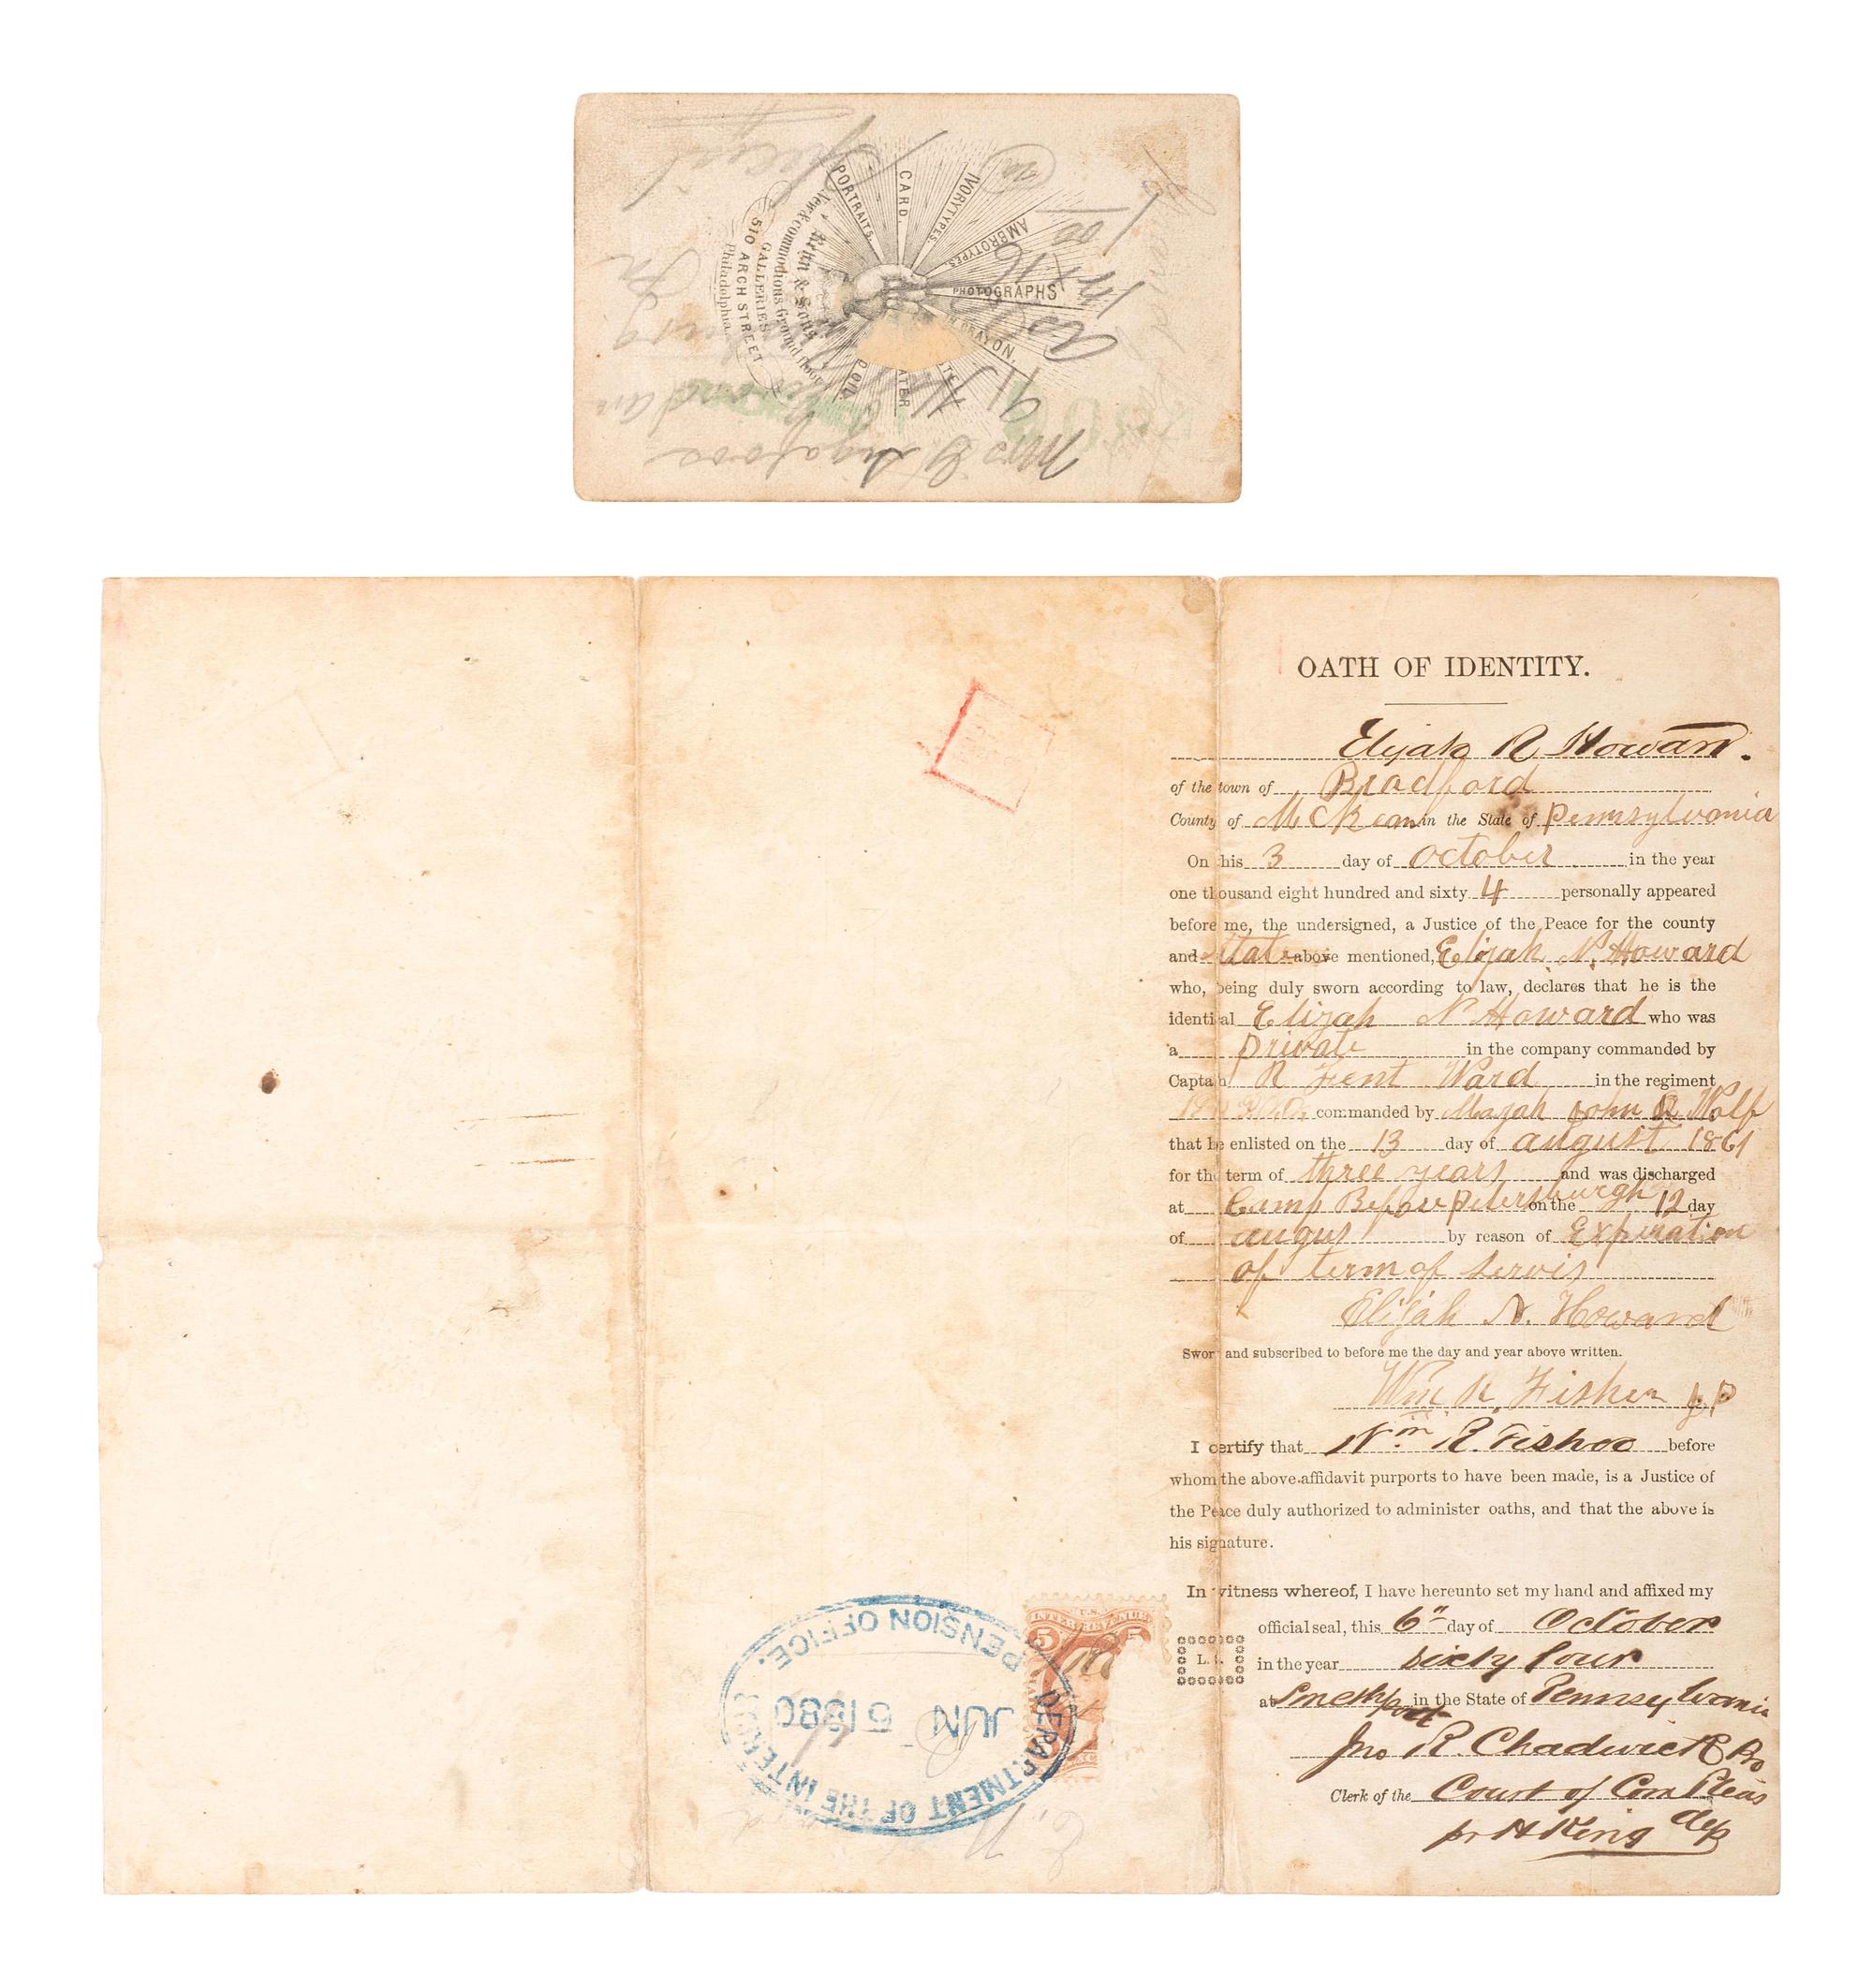 PORTRAITS.
CARD.
IVORYTYPES.
AMBROTYPES.
PHOTOGRAPHS
IN CRAYON,
OIL.
& Sons
New & commodious Ground floor
GALLERIES
510 ARCH STREET
Philadelphia.
Special
OATH OF IDENTITY.
Elijah R Howard.
of the town of Bradford
County of McKean in the State of Pennsylvania
On this 3 day of October in the year
one thousand eight hundred and sixty 4 personally appeared
before me, the undersigned, a Justice of the Peace for the county
and State above mentioned, Elijah N. Howard
who, being duly sworn according to law, declares that he is the
identical Elijah N Howard who was
a private in the company commanded by
Captain R Fent Ward in the regiment
commanded by John R Wolf
that he enlisted on the 13 day of august 1861
for the term of three years and was discharged
at Camp Before petersburgh on the 12 day
of augus by reason of Expiration
of term of servis
Elijah N. Howard
Sworn and subscribed to before me the day and year above written.
Wm R. Fisher J P
I certify that Wm R. Fisher before
whom the above affidavit purports to have been made, is a Justice of
the Peace duly authorized to administer oaths, and that the above is
his signature.
In witness whereof, I have hereunto set my hand and affixed my
official seal, this 6" day of October
in the year sixty four
at Smethport in the State of Pennsylvania
Jno R. Chadwick Pro
Clerk of the Court of Com Pleas
pr H King dep
L. S.
DEPARTMENT OF THE INTERIOR
JUN 5 1880
PENSION OFFICE.
U.S.
5